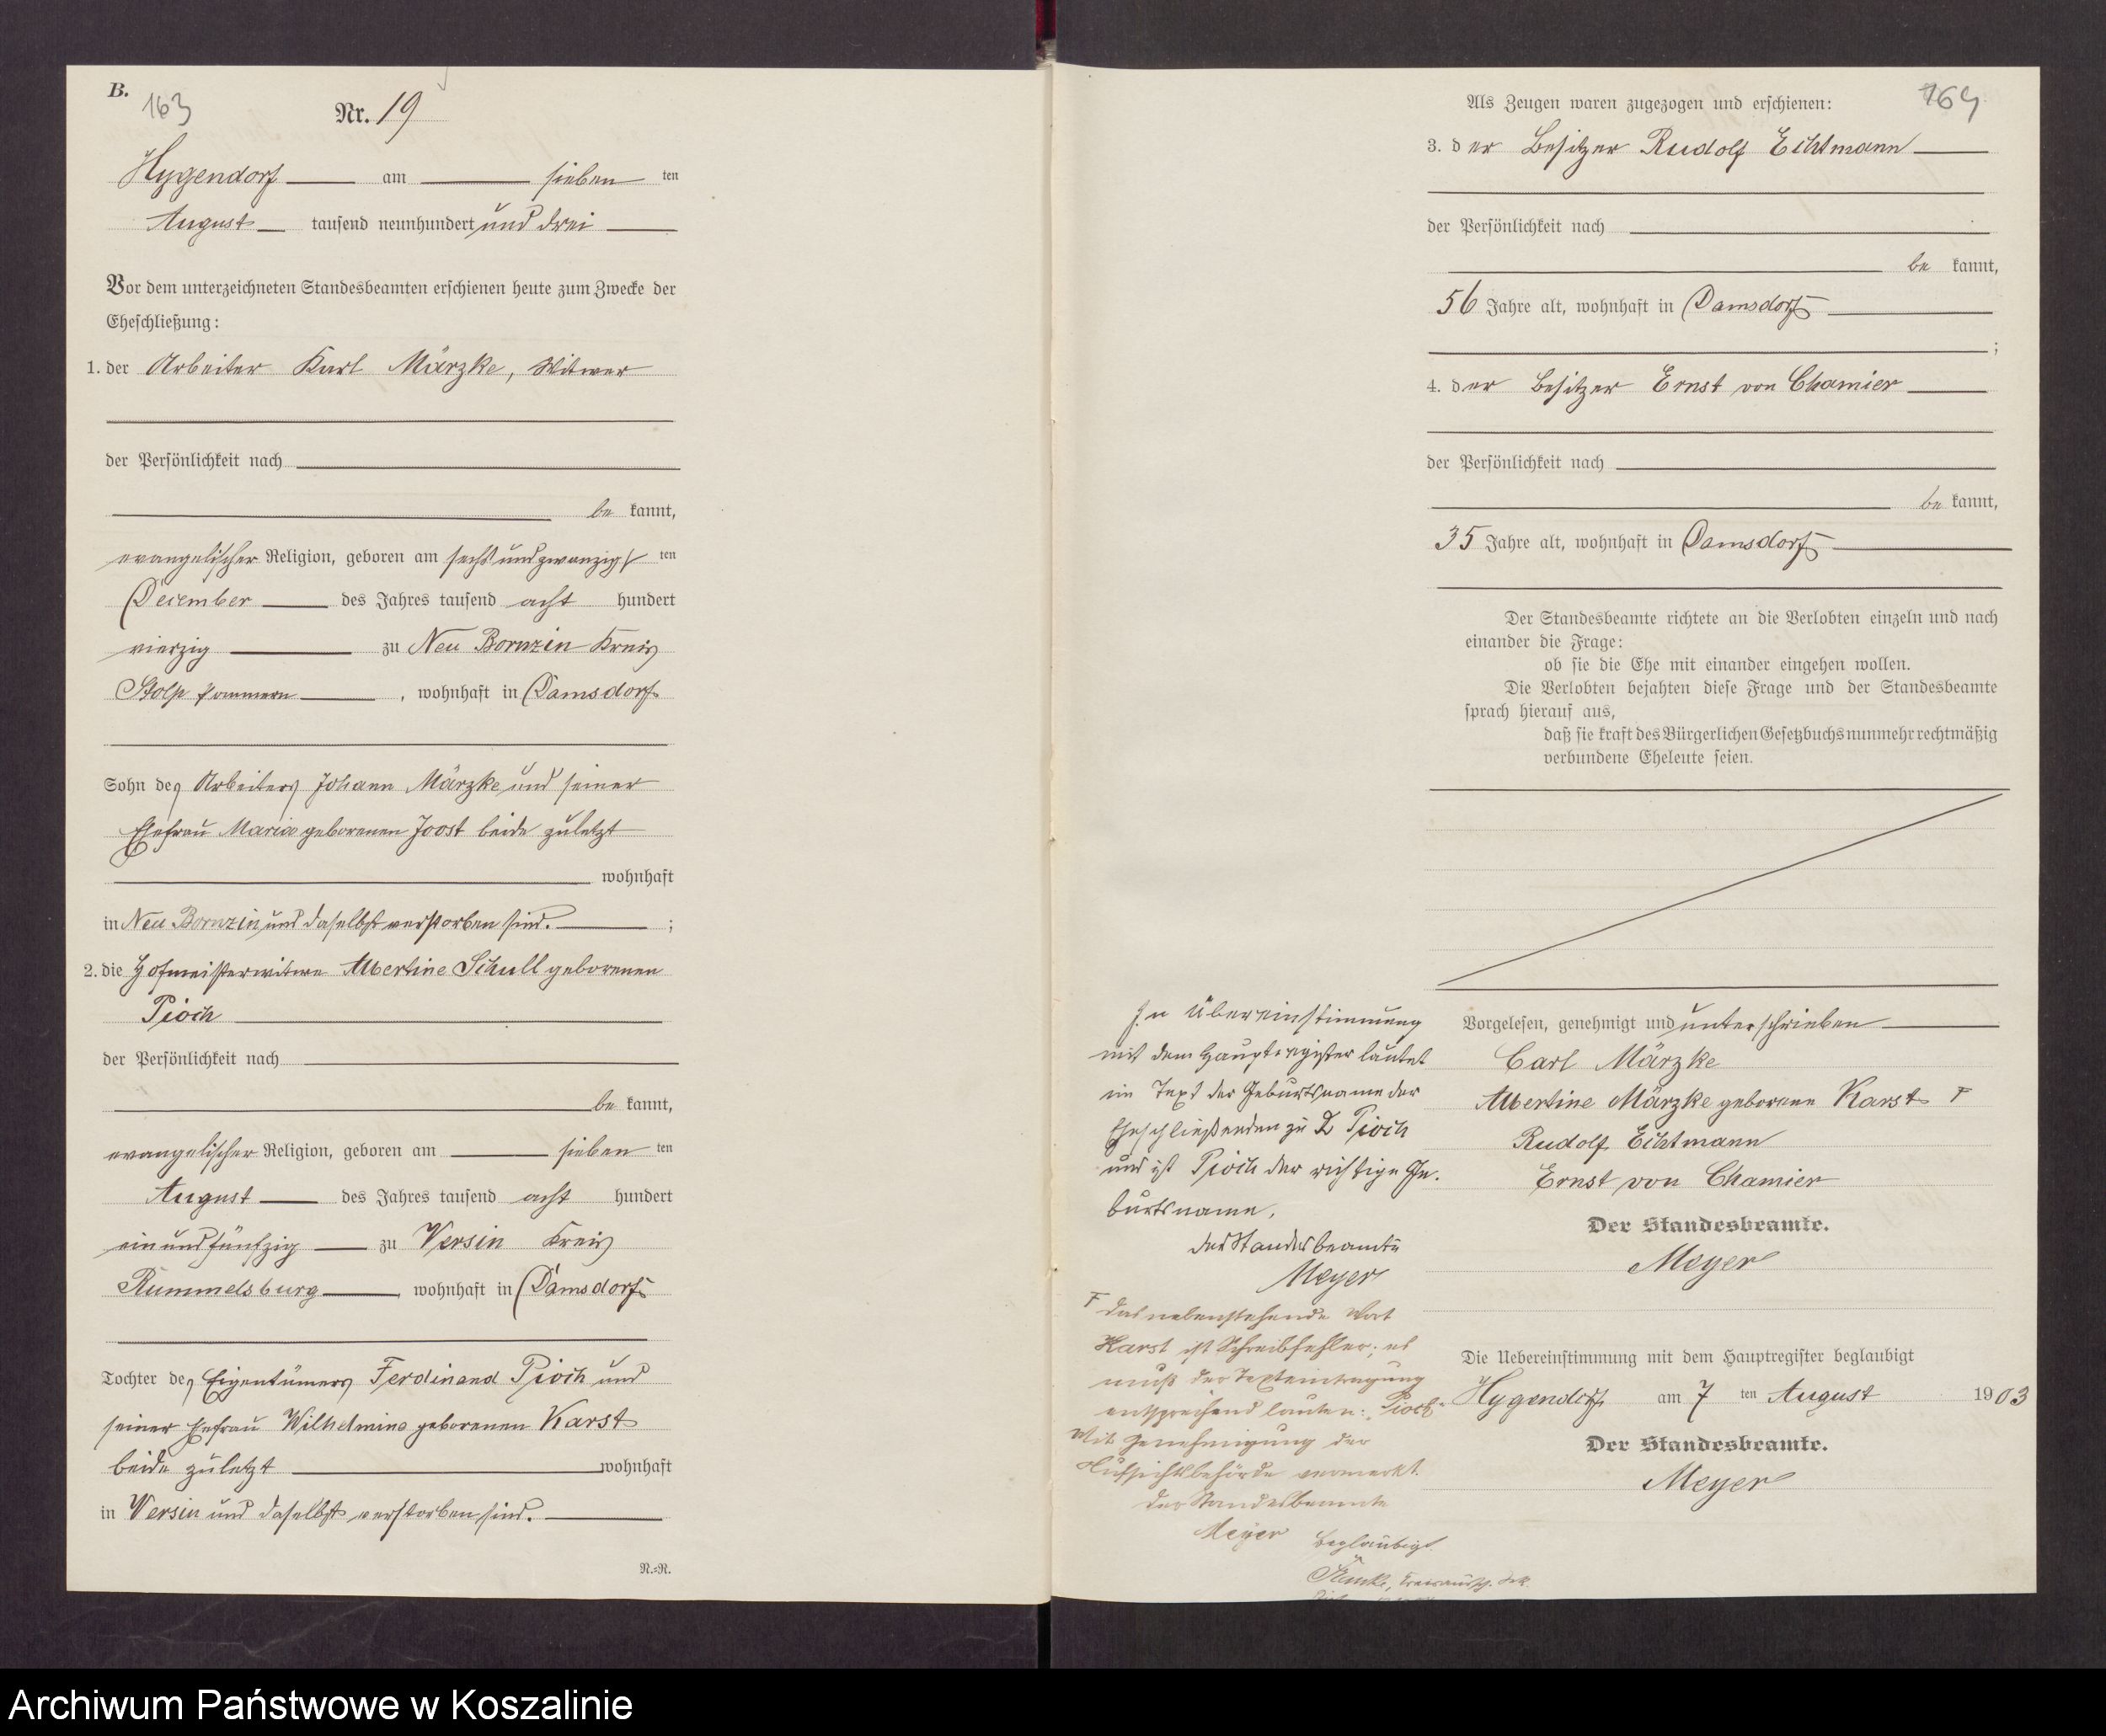 B.
163
Nr. 19
Hygendorf am sieben ten
August tausend neunhundert und drei
Vor dem unterzeichneten Standesbeamten erschienen heute zum Zwecke der
Eheschließung:
1. der Arbeiter Karl Märzke, Witwer
der Persönlichkeit nach
be kannt,
evangelischer Religion, geboren am sechsundzwanzigs ten
Dezember des Jahres tausend acht hundert
vierzig zu Neu Bornzin Kreis
Stolp Pommern, wohnhaft in Damsdorf
Sohn des Arbeiters Johann Märzke und seiner
Ehefrau Marie geborenen Joost beide zuletzt
wohnhaft
in Neu Bornzin und daselbst verstorben sind. ;
2. die Hofmeisterwitwe Albertine Schull geborenen
Pioch
der Persönlichkeit nach
be kannt,
evangelischer Religion, geboren am sieben ten
August des Jahres tausend acht hundert
einundfünfzig zu Versin Kreis
Rummelsburg, wohnhaft in Damsdorf
Tochter des Eigentümers Ferdinand Pioch und
seiner Ehefrau Wilhelmine geborenen Karst
beide zuletzt wohnhaft
in Versin und daselbst verstorben sind.
N.=R.
164
Als Zeugen waren zugezogen und erschienen:
3. der Besitzer Rudolf Eichtmann
der Persönlichkeit nach
be kannt,
56 Jahre alt, wohnhaft in Damsdorf
;
4. der Besitzer Ernst von Chamier
der Persönlichkeit nach
be kannt,
35 Jahre alt, wohnhaft in Damsdorf
Der Standesbeamte richtete an die Verlobten einzeln und nach
einander die Frage:
ob sie die Ehe mit einander eingehen wollen.
Die Verlobten bejahten diese Frage und der Standesbeamte
sprach hierauf aus,
daß sie kraft des Bürgerlichen Gesetzbuchs nunmehr rechtmäßig
verbundene Eheleute seien.
Vorgelesen, genehmigt und unterschrieben
Carl Märzke
Albertine Märzke geborene Karst F
Rudolf Eichtmann
Ernst von Chamier
Der Standesbeamte.
Meyer
Die Uebereinstimmung mit dem Hauptregister beglaubigt
Hygendorf am 7 ten August 1903
Der Standesbeamte.
Meyer
In Übereinstimmung
mit dem Hauptregister lautet
im Text der Geburtsname der
Eheschließenden zu 2 Pioch
und ist Pioch der richtige Ge-
burtsname.
Der Standesbeamte
Meyer
F Das nebenstehende Wort
Karst ist Schreibfehler; es
muß der Texteintragung
entsprechend lauten: "Pioch"
Mit Genehmigung der
Aufsichtsbehörde vermerkt.
Der Standesbeamte
Meyer
Beglaubigt
Archiwum Państwowe w Koszalinie